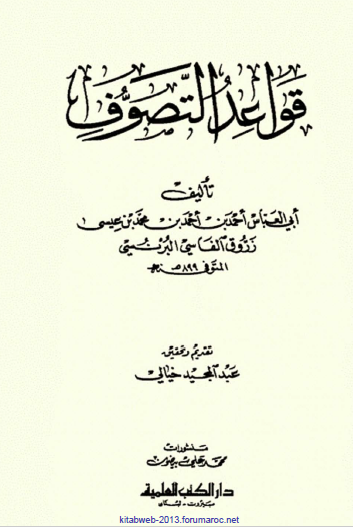 قَوَاعِدُ التَّصَوُّفِ
تأليف
أبي العباس أحمد بن أحمد بن محمد بن عيسى
زروق الفاسي البرنسي
المتوفى ٨٩٩ هـ
تقديم وتحقيق
عبد المجيد خيالي
منشورات
محمد علي بيضون
دار الكتب العلمية
بيروت - لبنان
kitabweb-2013.forumaroc.net